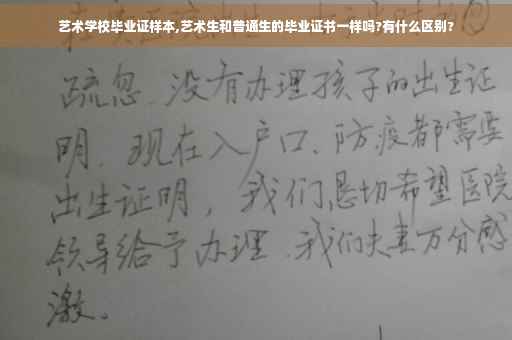 艺术学校毕业证样本,艺术生和普通生的毕业证书一样吗?有什么区别?
疏忽、没有办理孩子的出生证
明、现在入户口、防疫都需要
出生证明，我们恳切希望医院
领导给予办理、我们夫妻万分感
激。